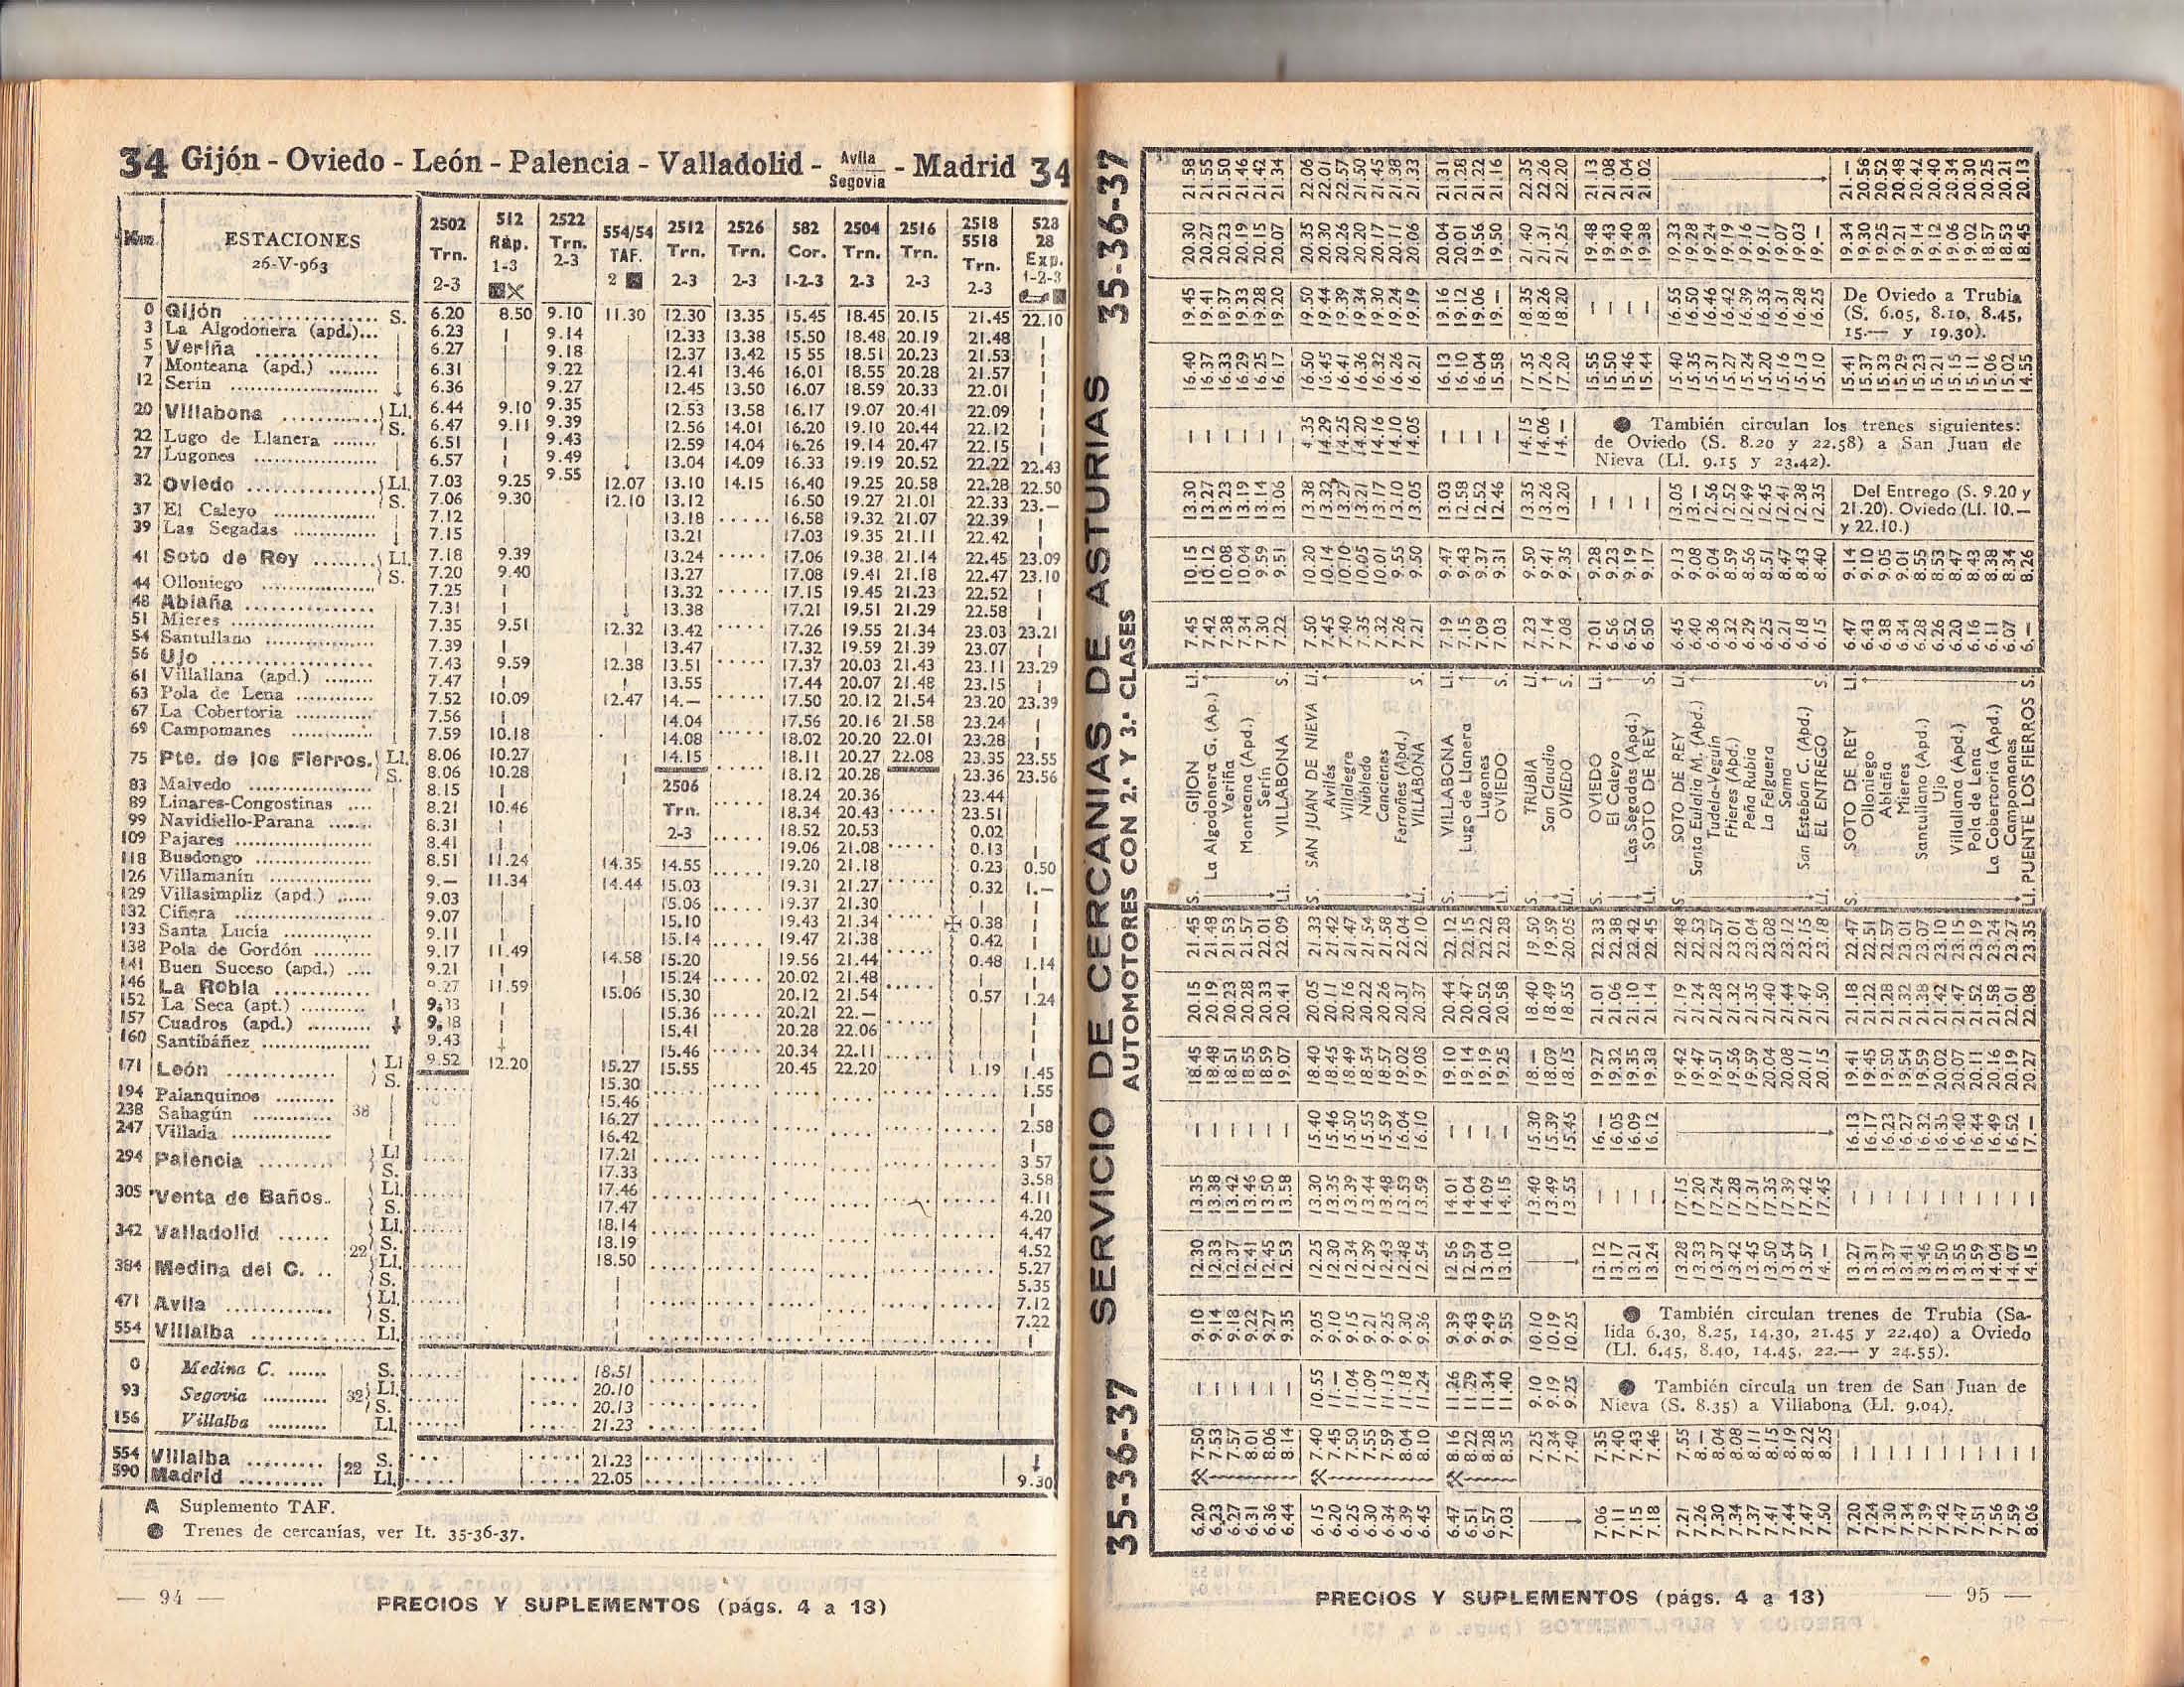 34 Gijón - Oviedo - León - Palencia - Valladolid - Avila/Segovia - Madrid 34
Km. ESTACIONES 26-V-963
2502 Trn. 2-3
512 Ráp. 1-3
2522 Trn. 2-3
554/54 TAF. 2
2512 Trn. 2-3
2526 Trn. 2-3
582 Cor. 1-2-3
2504 Trn. 2-3
2516 Trn. 2-3
2518 5518 Trn. 2-3
528 28 Exp. 1-2-3
0 Gijón S. 6.20 8.50 9.10 11.30 12.30 13.35 15.45 18.45 20.15 21.45 22.10
3 La Algodonera (apd.)... 6.23 9.14 12.33 13.38 15.50 18.48 20.19 21.48
5 Veriña 6.27 9.18 12.37 13.42 15 55 18.51 20.23 21.53
7 Monteana (apd.) 6.31 9.22 12.41 13.46 16.01 18.55 20.28 21.57
12 Serín 6.36 9.27 12.45 13.50 16.07 18.59 20.33 22.01
20 Villabona Ll. 6.44 9.10 9.35 12.53 13.58 16.17 19.07 20.41 22.09
S. 6.47 9.11 9.39 12.56 14.01 16.20 19.10 20.44 22.12
22 Lugo de Llanera 6.51 9.43 12.59 14.04 16.26 19.14 20.47 22.15
27 Lugones 6.57 9.49 13.04 14.09 16.33 19.19 20.52 22.22 22.43
32 Oviedo Ll. 7.03 9.25 9.55 12.07 13.10 14.15 16.40 19.25 20.58 22.28 22.50
S. 7.06 9.30 12.10 13.12 16.50 19.27 21.01 22.33 23.—
37 El Caleyo 7.12 13.18 16.58 19.32 21.07 22.39
39 Las Segadas 7.15 13.21 17.03 19.35 21.11 22.42
41 Soto de Rey Ll. 7.18 9.39 13.24 17.06 19.38 21.14 22.45 23.09
S. 7.20 9.40 13.27 17.08 19.41 21.18 22.47 23.10
44 Olloniego 7.25 13.32 17.15 19.45 21.23 22.52
48 Ablaña 7.31 13.38 17.21 19.51 21.29 22.58
51 Mieres 7.35 9.51 12.32 13.42 17.26 19.55 21.34 23.03 23.21
54 Santullano 7.39 13.47 17.32 19.59 21.39 23.07
56 Ujo 7.43 9.59 12.38 13.51 17.37 20.03 21.43 23.11 23.29
61 Villallana (apd.) 7.47 13.55 17.44 20.07 21.48 23.15
63 Pola de Lena 7.52 10.09 12.47 14.— 17.50 20.12 21.54 23.20 23.39
67 La Cobertoria 7.56 14.04 17.56 20.16 21.58 23.24
69 Campomanes 7.59 10.18 14.08 18.02 20.20 22.01 23.28
75 Pte. de los Fierros. Ll. 8.06 10.27 14.15 18.11 20.27 22.08 23.35 23.55
S. 8.06 10.28 18.12 20.28 23.36 23.56
2506 Trn. 2-3
83 Malvedo 8.15 18.24 20.36 23.44
89 Linares-Congostinas 8.21 10.46 18.34 20.43 23.51
99 Navidiello-Parana 8.31 18.52 20.53 0.02
109 Pajares 8.41 19.06 21.08 0.13
118 Busdongo 8.51 11.24 14.35 14.55 19.20 21.18 0.23 0.50
126 Villamanín 9.— 11.34 14.44 15.03 19.31 21.27 0.32 1.—
129 Villasimpliz (apd.) 9.03 15.06 19.37 21.30
132 Ciñera 9.07 15.10 19.43 21.34 0.38
133 Santa Lucía 9.11 15.14 19.47 21.38 0.42
138 Pola de Gordón 9.17 11.49 14.58 15.20 19.56 21.44 0.48 1.14
141 Buen Suceso (apd.) 9.21 15.24 20.02 21.48
146 La Robla 9.27 11.59 15.06 15.30 20.12 21.54 0.57 1.24
152 La Seca (apt.) 9.33 15.36 20.21 22.—
157 Cuadros (apd.) 9.38 15.41 20.28 22.06
160 Santibáñez 9.43 15.46 20.34 22.11
171 León Ll 9.52 12.20 15.27 15.55 20.45 22.20 1.19 1.45
S. 15.30 1.55
194 Palanquinos 15.46
238 Sahagún 38 16.27 2.58
247 Villada 16.42
294 Palencia Ll 17.21 3 57
S. 17.33 3.58
305 Venta de Baños.. Ll. 17.46 4.11
S. 17.47 4.20
342 Valladolid Ll. 18.14 4.47
22 S. 18.19 4.52
384 Medina del C. .. Ll. 18.50 5.27
S. 5.35
471 Avila Ll. 7.12
S. 7.22
554 Villalba Ll.
0 Medina C. S. 18.51
93 Segovia 32 Ll. 20.10
S. 20.13
156 Villalba Ll. 21.23
554 Villalba 22 S. 21.23
590 Madrid Ll. 22.05 9.30
A Suplemento TAF.
● Trenes de cercanías, ver It. 35-36-37.
— 94 —
PRECIOS Y SUPLEMENTOS (págs. 4 a 13)
35-36-37 SERVICIO DE CERCANIAS DE ASTURIAS 35-36-37
AUTOMOTORES CON 2.ª Y 3.ª CLASES
6.20 7.50 9.10 12.30 13.35 — 18.45 20.15 21.45 S. GIJON Ll. 7.45 10.15 13.30 — 16.40 19.45 20.30 21.58
6.23 7.53 9.14 12.33 13.38 — 18.48 20.19 21.48 La Algodonera G. (Ap.) 7.42 10.12 13.27 — 16.37 19.41 20.27 21.55
6.27 7.57 9.18 12.37 13.42 — 18.51 20.23 21.53 Veriña 7.38 10.08 13.23 — 16.33 19.37 20.23 21.50
6.31 8.01 9.22 12.41 13.46 — 18.55 20.28 21.57 Monteana (Apd.) 7.34 10.04 13.19 — 16.29 19.33 20.19 21.46
6.36 8.06 9.27 12.45 13.50 — 18.59 20.33 22.01 Serín 7.30 9.59 13.14 — 16.25 19.28 20.15 21.42
6.44 8.14 9.35 12.53 13.58 — 19.07 20.41 22.09 Ll. VILLABONA S. 7.22 9.51 13.06 — 16.17 19.20 20.07 21.34
6.15 7.40 10.55 9.05 12.25 13.30 15.40 18.40 20.05 21.33 S. SAN JUAN DE NIEVA Ll. 7.50 10.20 13.38 4.35 16.50 19.50 20.35 22.06
6.20 7.45 11.— 9.10 12.30 13.35 15.46 18.45 20.11 21.42 Avilés 7.45 10.14 13.32 14.29 16.45 19.44 20.30 22.01
6.25 7.50 11.04 9.15 12.34 13.39 15.50 18.49 20.16 21.47 Villalegre 7.40 10.10 13.27 14.25 16.41 19.39 20.26 22.57
6.30 7.55 11.09 9.21 12.39 13.44 15.55 18.54 20.22 21.54 Nubledo 7.35 10.05 13.21 14.20 16.36 19.34 20.20 21.50
6.34 7.59 11.13 9.25 12.43 13.48 15.59 18.57 20.26 21.58 Cancienes 7.32 10.01 13.17 14.16 16.32 19.30 20.17 21.45
6.39 8.04 11.18 9.30 12.48 13.53 16.04 19.02 20.31 22.04 Ferroñes (Apd.) 7.26 9.55 13.10 14.10 16.26 19.24 20.11 21.38
6.45 8.10 11.24 9.36 12.54 13.59 16.10 19.08 20.37 22.10 Ll. VILLABONA S. 7.21 9.50 13.05 14.05 16.21 19.19 20.06 21.33
6.47 8.16 11.26 9.39 12.56 14.01 — 19.10 20.44 22.12 S. VILLABONA Ll. 7.19 9.47 13.03 — 16.13 19.16 20.04 21.31
6.51 8.22 11.29 9.43 12.59 14.04 — 19.14 20.47 22.15 Lugo de Llanera 7.15 9.43 12.58 — 16.10 19.12 20.01 21.28
6.57 8.28 11.34 9.49 13.04 14.09 — 19.19 20.52 22.22 Lugones 7.09 9.37 12.52 — 16.04 19.06 19.56 21.22
7.03 8.35 11.40 9.55 13.10 14.15 — 19.25 20.58 22.28 Ll. OVIEDO S. 7.03 9.31 12.46 — 15.58 19.— 19.50 21.16
7.25 9.10 10.10 13.40 15.30 18.— 18.40 19.50 S. TRUBIA Ll. 7.23 9.50 13.35 14.15 17.35 18.35 21.40 22.35
7.34 9.19 10.19 13.49 15.39 18.09 18.49 19.59 San Claudio 7.14 9.41 13.26 14.06 17.26 18.26 21.31 22.26
7.40 9.25 10.25 13.55 15.45 18.15 18.55 20.05 Ll. OVIEDO S. 7.08 9.35 13.20 14.— 17.20 18.20 21.25 22.20
7.06 7.35 13.12 — 16.— 19.27 21.01 22.33 S. OVIEDO Ll. 7.01 9.28 — 15.55 — 19.48 21.13
7.11 7.40 13.17 — 16.05 19.32 21.06 22.38 El Caleyo 6.56 9.23 — 15.50 — 19.43 21.08
7.15 7.43 13.21 — 16.09 19.35 21.10 22.42 Las Segadas (Apd.) 6.52 9.19 — 15.46 — 19.40 21.04
7.18 7.46 13.24 — 16.12 19.38 21.14 22.45 Ll. SOTO DE REY S. 6.50 9.17 — 15.44 — 19.38 21.02
7.21 7.55 13.28 17.15 19.42 21.19 22.48 S. SOTO DE REY Ll. 6.45 9.13 13.05 15.40 16.55 19.33
7.26 8.— 13.33 17.20 19.47 21.24 22.53 Santa Eulalia M. (Apd.) 6.40 9.08 13.— 15.35 16.50 19.28
7.30 8.04 13.37 17.24 19.51 21.28 22.57 Tudela-Veguín 6.36 9.04 12.56 15.31 16.46 19.24
7.34 8.08 13.42 17.28 19.56 21.32 23.01 Frieres (Apd.) 6.32 8.59 12.52 15.27 16.42 19.19
7.37 8.11 13.45 17.31 19.59 21.35 23.04 Peña Rubia 6.29 8.56 12.49 15.24 16.39 19.16
7.41 8.15 13.50 17.35 20.04 21.40 23.08 La Felguera 6.25 8.51 12.45 15.20 16.35 19.11
7.44 8.19 13.54 17.39 20.08 21.44 23.12 Sama 6.21 8.47 12.41 15.16 16.31 19.07
7.47 8.22 13.57 17.42 20.11 21.47 23.15 San Esteban C. (Apd.) 6.18 8.43 12.38 15.13 16.28 19.03
7.50 8.25 14.— 17.45 20.15 21.50 23.18 Ll. EL ENTREGO S. 6.15 8.40 12.35 15.10 16.25 19.—
7.20 — 13.27 — 16.13 19.41 21.18 22.47 S. SOTO DE REY Ll. 6.47 9.14 15.41 19.34 21.—
7.24 — 13.31 — 16.17 19.45 21.22 22.51 Olloniego 6.43 9.10 15.37 19.30 20.56
7.30 — 13.37 — 16.23 19.50 21.28 22.57 Ablaña 6.38 9.05 15.33 19.25 20.52
7.34 — 13.41 — 16.27 19.54 21.32 23.01 Mieres 6.34 9.01 15.29 19.21 20.48
7.39 — 13.46 — 16.32 19.59 21.38 23.07 Santullano (Apd.) 6.28 8.55 15.23 19.14 20.42
7.42 — 13.50 — 16.35 20.02 21.42 23.10 Ujo 6.26 8.53 15.21 19.12 20.40
7.47 — 13.55 — 16.40 20.07 21.47 23.15 Villallana (Apd.) 6.20 8.47 15.15 19.06 20.34
7.51 — 13.59 — 16.44 20.11 21.52 23.19 Pola de Lena 6.16 8.43 15.11 19.02 20.30
7.56 — 14.04 — 16.49 20.16 21.58 23.24 La Cobertoria (Apd.) 6.11 8.38 15.06 18.57 20.25
7.59 — 14.07 — 16.52 20.19 22.01 23.27 Campomanes 6.07 8.34 15.02 18.53 20.21
8.06 — 14.15 — 17.— 20.27 22.08 23.35 Ll. PUENTE LOS FIERROS S. 6.— 8.26 14.55 18.45 20.13
De Oviedo a Trubia
(S. 6.05, 8.10, 8.45,
15.— y 19.30).
● También circulan los trenes siguientes:
de Oviedo (S. 8.20 y 22.58) a San Juan de
Nieva (Ll. 9.15 y 23.42).
Del Entrego (S. 9.20 y
21.20). Oviedo (Ll. 10.—
y 22.10.)
● También circulan trenes de Trubia (Sa-
lida 6.30, 8.25, 14.30, 21.45 y 22.40) a Oviedo
(Ll. 6.45, 8.40, 14.45, 22.— y 24.55).
● También circula un tren de San Juan de
Nieva (S. 8.35) a Villabona (Ll. 9.04).
PRECIOS Y SUPLEMENTOS (págs. 4 a 13)
— 95 —